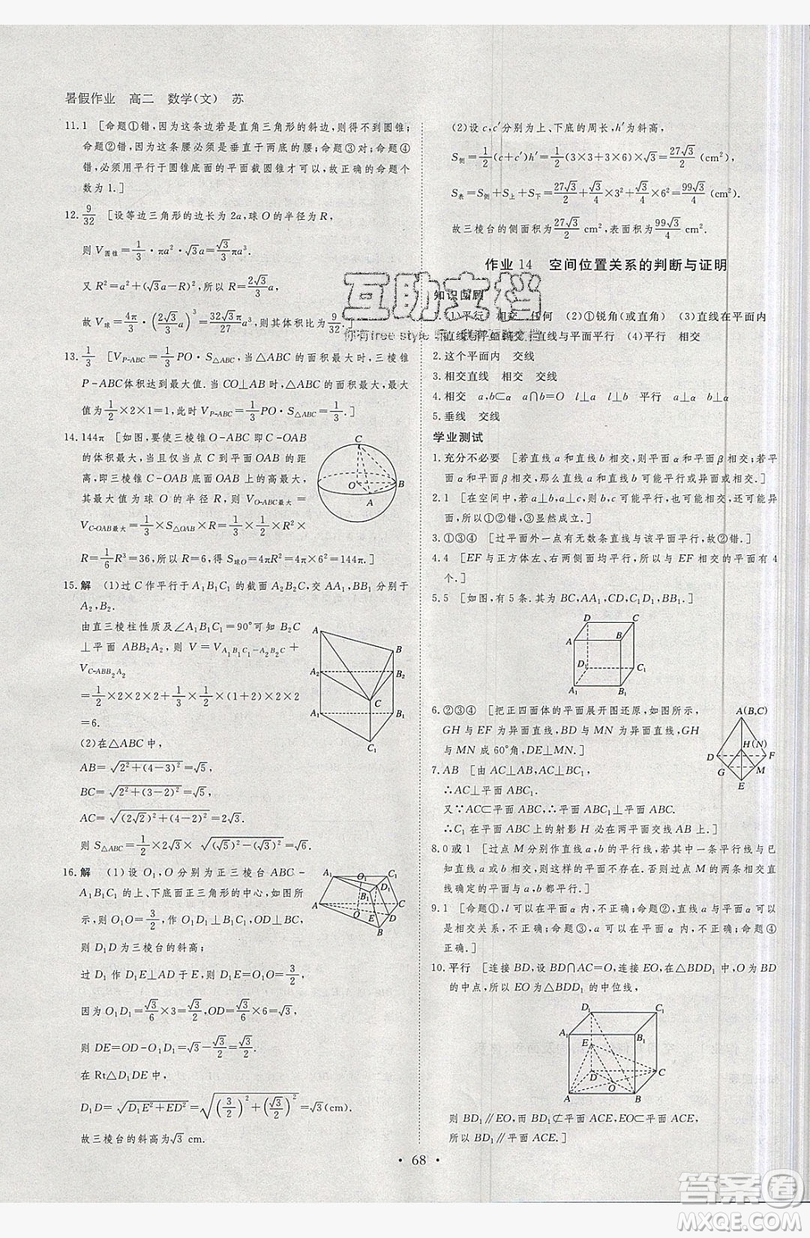 暑假作业 高二 数学(文) 苏
11.1 [命题①错,因为这条边若是直角三角形的斜边,则得不到圆锥;
命题②错,因为这条腰必须是垂直于两底的腰;命题③对;命题④
错,必须用平行于圆锥底面的平面截圆锥才可以,故正确命题的个
数为1.]
12. 9/32 [设等边三角形的边长为2a,球O的半径为R,
则V圆锥=1/3·πa²·√3a=√3/3πa³.
又R=1/3×√3a=√3/3a,
故V球=4π/3·(√3/3a)³=
13. 1/3 [V_{P-ABC}=1/3PO·S△ABC,当△ABC的面积最大时,三棱锥
P-ABC体积达到最大值.当CO⊥AB时,△ABC的面积最大,最大
值为1/2×2×1=1,此时V_{P-ABC}=1/3PO·S△ABC=1/3.]
14. 144π [如图,要使三棱锥O-ABC即C-OAB
的体积最大,当且仅当点C到平面OAB的距
离,即三棱锥C-OAB底面OAB上的高最大,
其最大值为球O的半径R,则V_{O-ABC最大}=
V_{C-OAB最大}=1/3×S△OAB×R=1/3×1/2×R²×
R=1/6R³=36,所以R=6,得S球O=4πR²=4π×6²=144π.]
15. 解 (1)过C作平行于A₁B₁C₁的截面A₂B₂C,交AA₁,BB₁分别于
A₂,B₂.
由直三棱柱性质及∠A₁B₁C₁=90°可知B₂C⊥
平面ABB₂A₂,则该几何体的体积V=V_{A₁B₁C₁-A₂B₂C}+
V_{C-ABB₂A₂}
=1/2×2×2×2+1/3×1/2×(1+2)×2×2
=6.
(2)在△ABC中,
AB=√(2²+(4-3)²)=√5,
BC=√(2²+(3-2)²)=√5,
AC=√((2√2)²+(4-2)²)=2√3.
则S△ABC=1/2×2√3×√((√5)²-(√3)²)=√6.
16. 解 (1)设O₁,O分别为正三棱台ABC-
A₁B₁C₁的上、下底面正三角形的中心,如图所
示,则O₁O=3/2,过O₁作O₁D₁⊥B₁C₁,OD⊥BC,
则D₁D为三棱台的斜高;
过D₁作D₁E⊥AD于E,则D₁E=O₁O=3/2,
因为O₁D₁=√3/6×3=√3/2,OD=√3/6×6=√3,
则DE=OD-O₁D₁=√3-√3/2=√3/2.
在Rt△D₁DE中,
D₁D=√(D₁E²+ED²)=√((3/2)²+(√3/2)²)=√3 (cm).
故三棱台的斜高为√3 cm.
(2)设c,c′分别为上、下底的周长,h′为斜高,
S侧=1/2(c+c′)h′=1/2(3×3+3×6)×√3=27√3/2(cm²),
S表=S侧+S上+S下=27√3/2+√3/4×3²+√3/4×6²=99√3/4(cm²).
故三棱台的侧面积为27√3/2 cm²,表面积为99√3/4 cm².
作业14 空间位置关系的判断与证明
互助文档
知识回顾
1. 平行 相交 任何 (2)①锐角(或直角) (3)直线在平面内
直线与平面平行 (4)平行 相交
你有free style
2. 这个平面内 交线
3. 相交直线 a,b⊂α a∩b=O l⊥a 平行 a⊥α b⊥α
4. 相交 a,b⊂α a∩b=O l⊥a 平行 a⊥α b⊥α
5. 垂线 交线
学业测试
1. 充分不必要 [若直线a和直线b相交,则平面α和平面β相交;若平
面α和平面β相交,那么直线a和直线b可能平行或异面或相交.]
2.1 [在空间中,若a⊥b,a⊥c,则b,c可能平行,也可能相交,还可能异
面,所以①②错,③显然成立.]
3. ①③④ [过平面外一点有无数条直线与该平面平行,故②错.]
4.4 [EF与正方体左、右两侧面均平行.所以与EF相交的侧面有4
个.]
5.5 [如图,有5条.其为BC,AA₁,CD,BB₁,C₁D₁.]
6. ②③④ [把正四面体的平面展开图还原,如图所示,
GH与EF为异面直线,BD与MN为异面直线,
GH与MN成60°角,DE⊥MN.]
7. AB [∵AC⊥AB,AC⊥BC₁,AB∩BC₁=B,
∴AC⊥平面ABC₁.
又∵AC⊂平面ABC,∴平面ABC₁⊥平面ABC.
∴C₁在平面ABC上的射影H必在两平面交线AB上.]
8.0或1 [过点M分别作直线a,b的平行线,若其中一条平行线与已
知直线a或b确定的平面平行另一条直线,则不存在.否则过点M的
两条相交直线确定的平面与a,b都平行.]
9.1 [命题①,l可以在平面α内,不正确;命题②,直线a与平面α可以
是相交关系,不正确;命题③,a可以在平面α内,不正确;命题④
正确.]
10. 平行 [连接BD,设BD∩AC=O,连接EO,在△BDD₁中,E为DD₁
的中点,所以EO为△BDD₁的中位线,
则BD₁∥EO,而BD₁⊄平面ACE,EO⊂平面ACE,
所以BD₁∥平面ACE.]
· 68 ·
答案圈
MXQE.COM